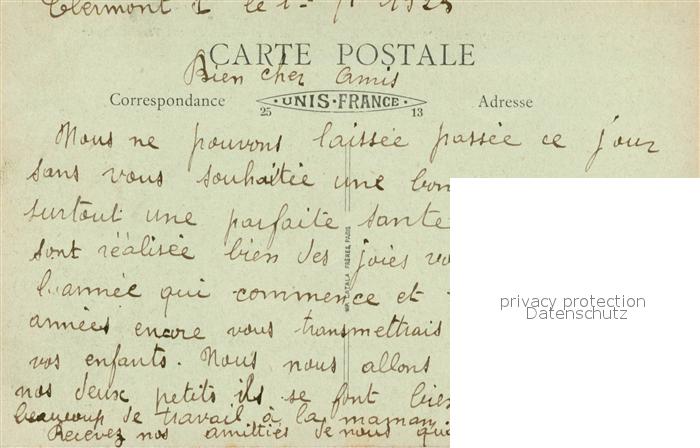 Clermont 1 le 1- /1 1925
CARTE POSTALE
Bien cher amis
Correspondance
UNIS-FRANCE
Adresse
25 13
Nous ne pouvons laissée passée ce jour
sans vous souhaitée une bon
surtout une parfaite sante
sont réalisée bien des joies vo
l'année qui commence et
années encore vous transmettrais
vos enfants. Nous nous allons
nos deux petits ils se font bien
beaucoup de travail à la maman
Recevez nos amitties de nous
CATALA FRÈRES, PARIS
privacy protection
Datenschutz